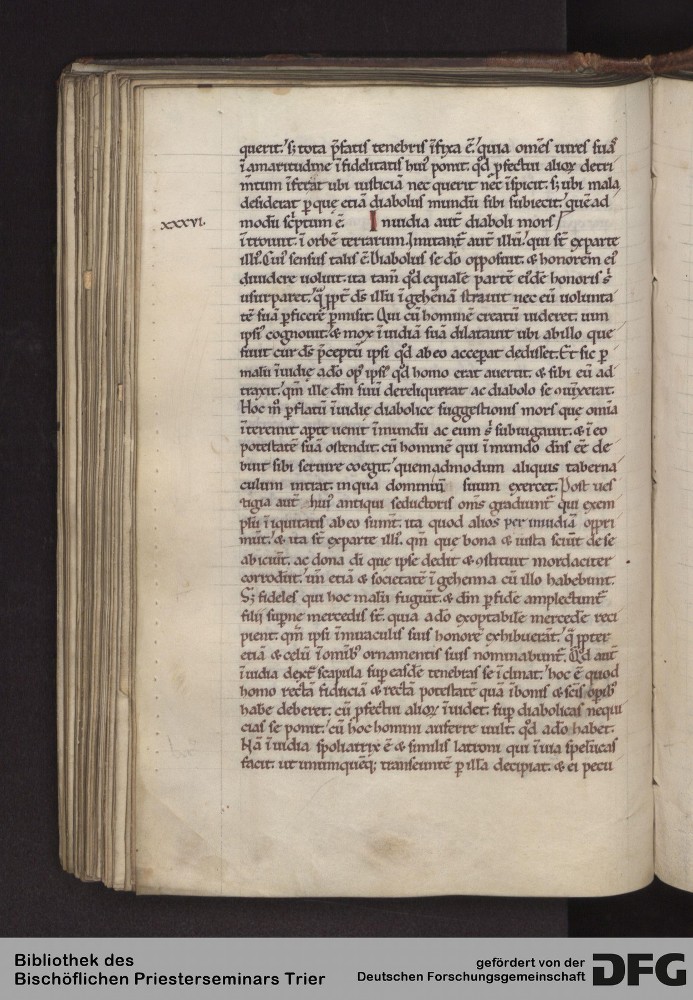 querit. s; tota p̄fatis tenebris īfixa ē. quia om̄es uires suas
ī amaritudine īfidelitatis hui' ponit. qd̄ p̄fectui alioꝝ detri
m̄tum īferat ubi iusticiā nec querit nec īspicit. s; ubi mala
desiderat ꝑ que etiā diabolus mundū sibi subiecit. quēad
xxxvi.
modū sc̄ptum ē. Inuidia aut̄ diaboli mors
ītroiuit. ī orbē terrarum. Imitant̄ aut̄ illū. qui st̄ ex parte
illi'. Cui' sensus talis ē. Diabolus se dō opposuit. & honorem ei'
diuidere uoluit. ita tam̄ qd̄ equalē partē eidē honoris s'
usurparet. ꝓpt̄ ds̄ illū ī gehennā strauit nec eū uolunta
tē suā ꝑficere ꝑmisit. Qui cū hominē creatū uideret. uim
ipsi' cognouit. & mox īuidiā suā dilatauit ubi ab illo que
siuit cur ds̄ p̄ceptū ipsi qd̄ ab eo acceperat dedisset. Et sic ꝑ
malū īuidie a dō op' ipsi' qd̄ homo erat auertit. & sibi eū ad
traxit. qm̄ ille dm̄ suū dereliquerat ac diabolo se ꝯiūxerat.
Hoc m̄ ꝑ flatū īuidie diabolice suggestionis mors que omīa
īterimit aperte uenit ī mundū ac eum s' subiugauit. & ī eo
potestatē suā ostendit. cū hominē qui ī mundo dn̄s eē de
buit sibi seruire coegit. quemadmodum aliquis taberna
culum intrat. in qua dominiū suum exercet. Post ues
tigia aut̄ hui' antiqui seductoris om̄s gradiunt̄ qui exem
plū īiquitatis ab eo sumt̄. ita quod alios per inuidiā oppri
mūt. & ita st̄ ex parte illi'. qm̄ que bona & iusta sciūt de se
abiciūt. ac dona di que ipse dedit & ꝯstituit mordaciter
corrodūt. un̄ etiā & societatē ī gehenna cū illo habebunt.
S; fideles qui hoc malū fugiūt. & dm̄ ꝑ fidē amplectunt̄
filii supne mercedis st̄. quia a dō exoptabilē mercedē reci
pient. qm̄ ipsi ī maculis suis honorē exhibuerāt. q̄ ꝓpter
etiā & celū ī omīb' ornamentis suis nominabunt̄. Qd̄ aut̄
īuidia dext̄ scapula sup easdē tenebras se īclinat. hoc ē quod
homo rectā fiduciā & rectā potestatē quā ī bonis & sc̄is opib'
habe deberet. cū p̄fectui alioꝝ īuidet. sup diabolicas nequi
cias se ponit. cū hoc homini auferre uult. qd̄ a dō habet.
Nā īuidia spoliatrix ē & similis latroni qui ī uia speluncas
facit. ut unumquēq; transeuntē ꝑ illa decipiat. & ei pecu
Bibliothek des
Bischöflichen Priesterseminars Trier
gefördert von der
Deutschen Forschungsgemeinschaft
DFG